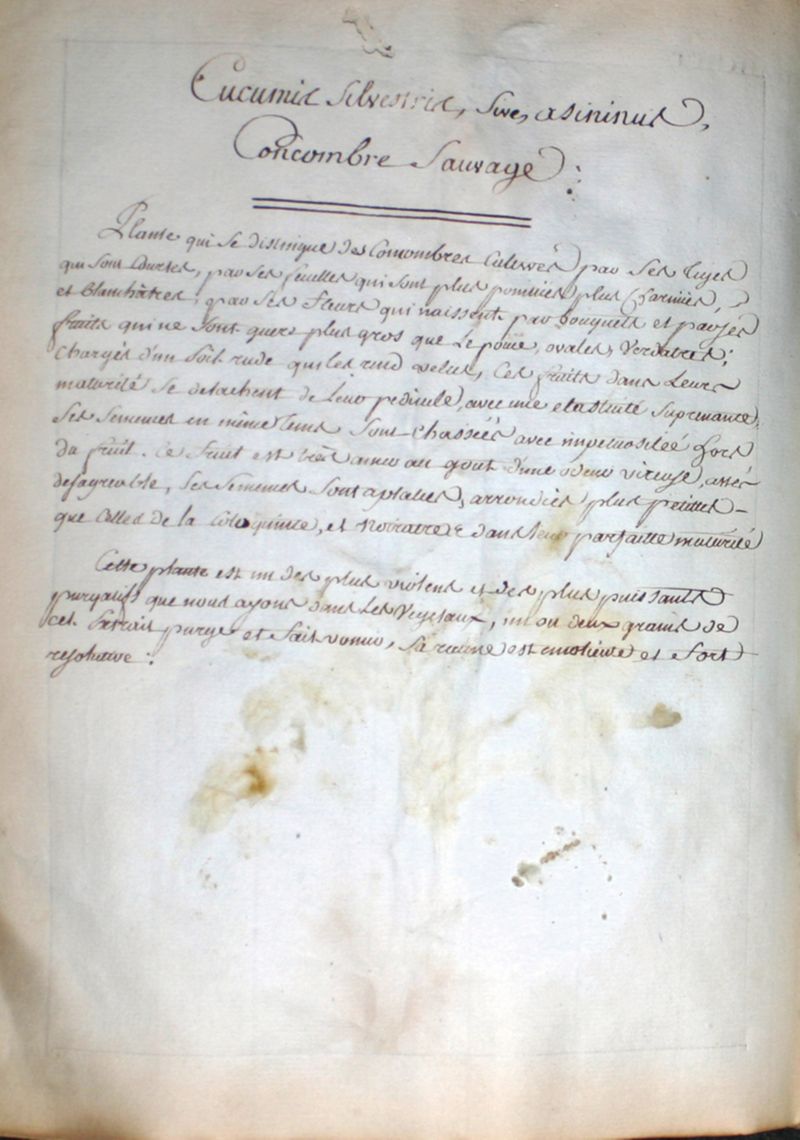 Cucumis silvestris, sive, asininus,
Concombre Sauvage :
Plante qui se distingue des Concombres Cultivés, par ses tiges
qui sont Courtes, par ses feuilles qui sont plus pointües, plus Charnües,
et blanchâtres ; par ses fleurs qui naissent par bouquets et par ses
fruits qui ne sont guere plus gros que le pouce, ovales, verdatres ;
Chargés d'un poil rude qui les rend velus, Ces fruits dans leurs
maturité se detachent de leur pedicule, avec une elasticité suprenante,
ses semences en même tems sont chassées avec impetuositée hors
du fruit. Ce fruit est très amer au gout d'une odeur vireuse, assés
desagreable, ses semences sont aplaties, arrondies plus petittes
que Celles de la Coloquinte, et noiratre dans leur parfaitte maturité
Cette plante est un des plus violens et des plus puissants
purgatifs que nous ayons dans les Vegetaux, un ou deux grains de
cet Extrait purge et fait vomir, sa racine est emoliente et fort
resolutive :